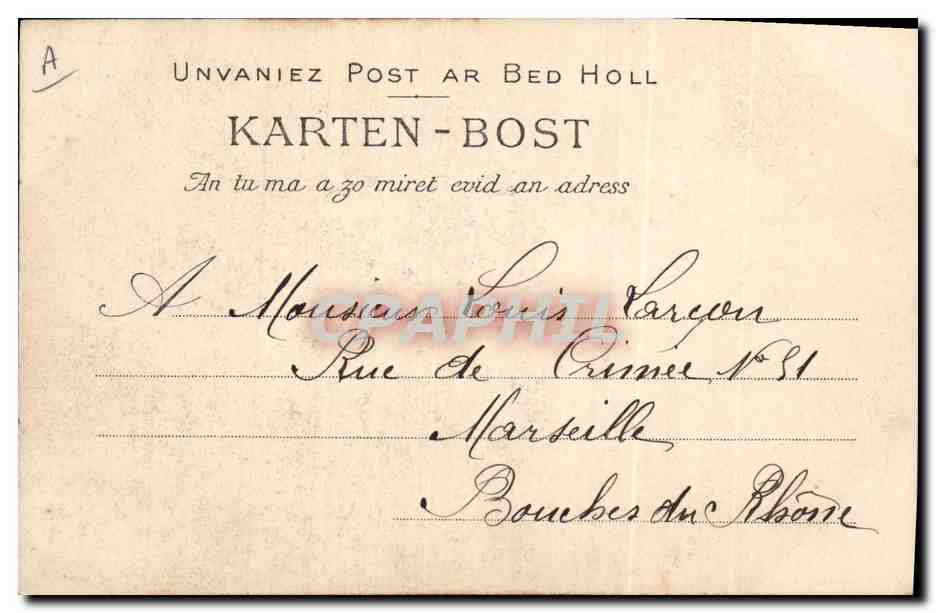 A
UNVANIEZ POST AR BED HOLL
KARTEN-BOST
An tu ma a zo miret evid an adress
A Monsieur Louis Larçon
CPAPHIL
Rue de Crimée No 51
Marseille
Bouches du Rhône